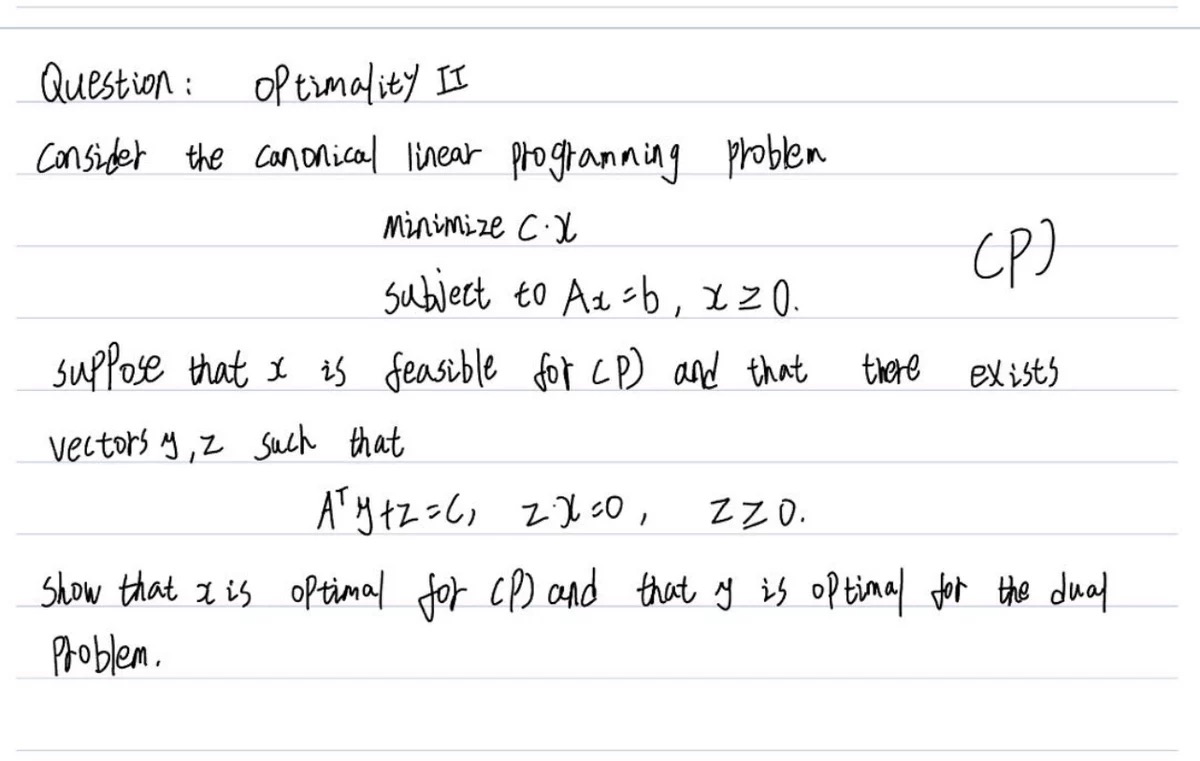 Question: Optimality II
Consider the canonical linear programming problem
Minimize C·x
subject to Ax=b, x≥0. (P)
suppose that x is feasible for (P) and that there exists
vectors y,z such that
Aᵀy+z=c, z·x=0, z≥0.
Show that x is optimal for (P) and that y is optimal for the dual
problem.